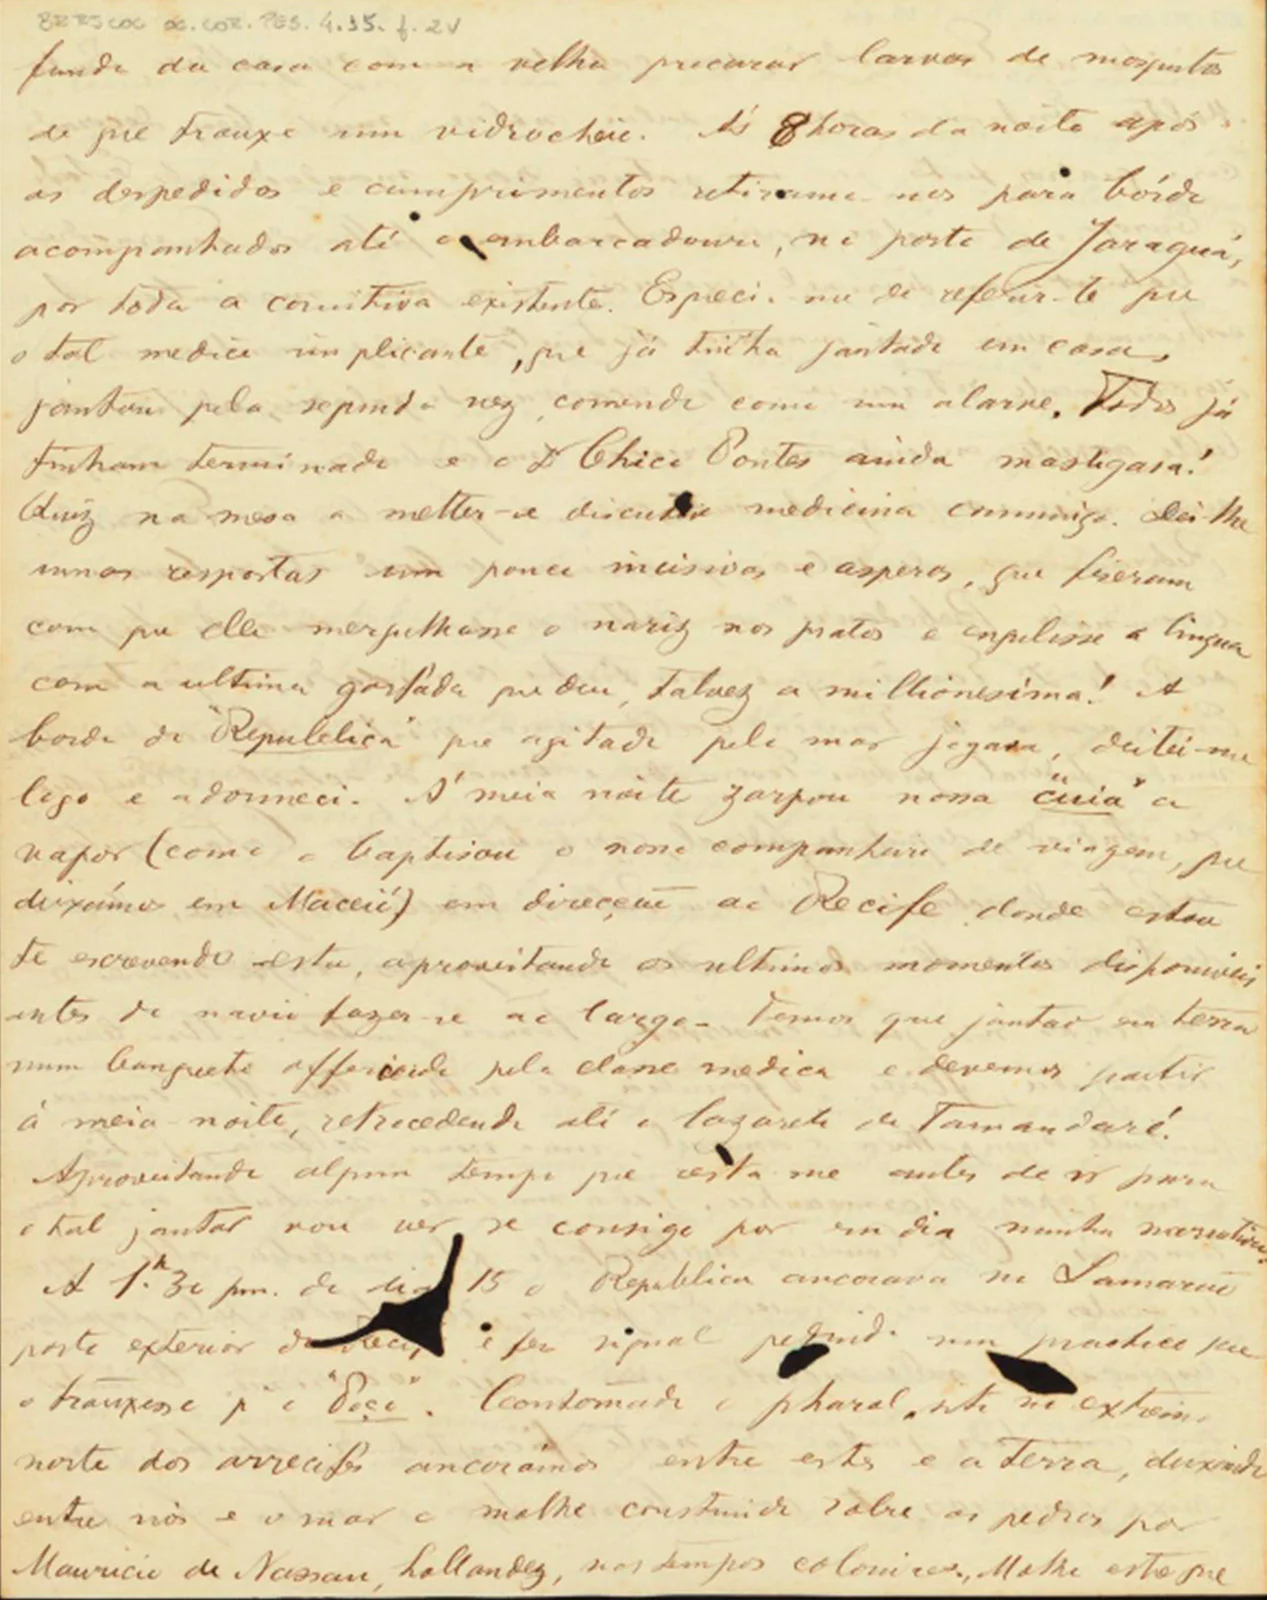 BR RJ COC OC. COR. PES. 4.35. f. 2v
fundo da casa com a velha procurar larvas de mosquitos
de que trouxe um vidro cheio. Ás 8 horas da noite após
as despedidas e cumprimentos retiramo-nos para bórdo
acompanhados até o embarcadouro, no porto de Jaraguá,
por toda a comitiva existente. Esqueci-me de referir-te que
o tal medico implicante, que já tinha jantado em casa,
jantou pela segunda vez, comendo como um alarve. Todos já
tinham terminado e o Dr Chico Pontes ainda mastigava!
Quiz na mesa a metter-se discutir medicina commigo. Dei-lhe
umas respostas um pouco incisivas e asperas, que fizeram
com que elle mergulhasse o nariz nos pratos e engulisse a lingua
com a ultima garfáda que deu, talvez a millionesima! A
bordo do "Republica" que agitado pelo mar jogava, deitei-me
logo e adormeci. Á meia noite zarpou nossa "cuia" a
vapor (como o baptisou o nosso companheiro de viagem, que
deixámos em Maceió) em direcção ao Recife donde estou
te escrevendo esta, aproveitando os ultimos momentos disponiveis
antes do navio fazer-se ao largo. Temos que jantar em terra
num banquete offerecido pela classe medica e devemos partir
á meia noite, retrocedendo até o lazareto de Tamandaré.
Aproveitando algum tempo que resta-me antes de ir para
o tal jantar vou ver se consigo por em dia minha narrativa.
A 1.h 30 pm. do dia 15 o Republica ancorava no Lamarão
porto exterior do Recife e fez signal pedindo um practico que
o trouxesse p'o "Poço". Contornado o pharol, sito no extremo
norte dos arrecifes ancorámos entre estes e a terra, deixando
entre nós e o mar o molhe construido sobre as pedras por
Mauricio de Nassau, hollandez, nos tempos coloniaes. Molhe este que